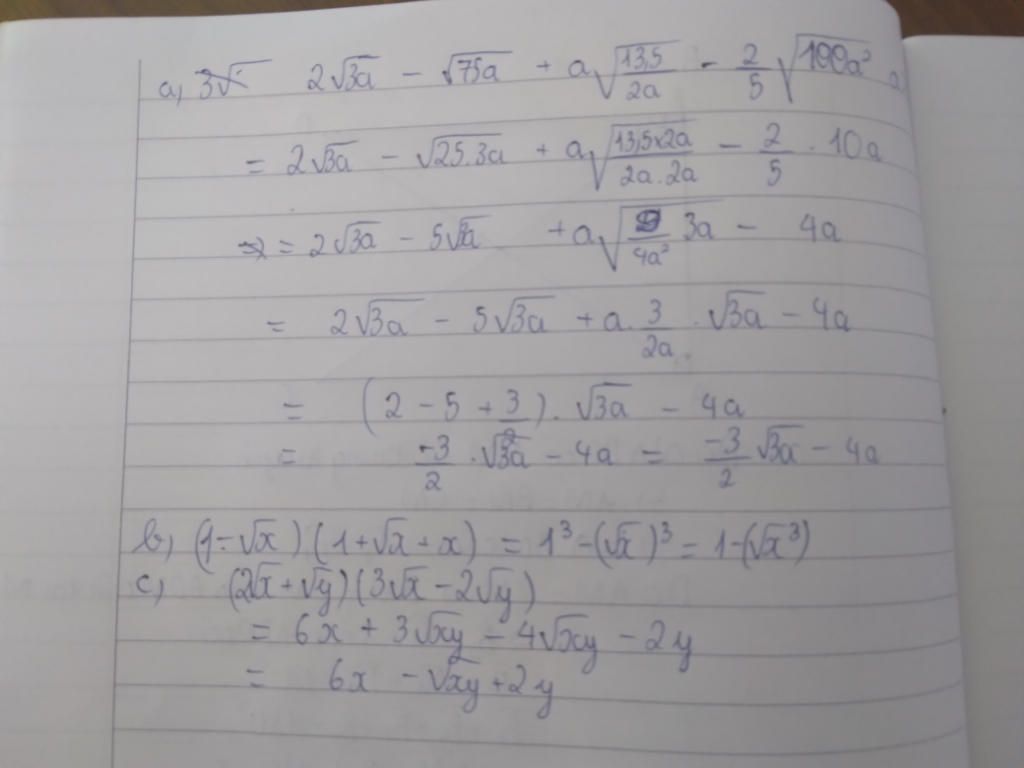 a, 3√ 2√3a - √75a + a√(13,5/2a) - 2/5 √100a² a
= 2√3a - √25.3a + a√(13,5×2a/2a.2a) - 2/5 . 10a
= 2√3a - 5√3a + a√(9/4a² 3a) - 4a
= 2√3a - 5√3a + a. 3/2a . √3a - 4a
= (2 - 5 + 3/2) . √3a - 4a
= -3/2 . √3a - 4a = -3/2 √3a - 4a
b, (1-√x)(1+√x+x) = 1³-(√x)³ = 1-(√x³)
c, (2√x+√y)(3√x-2√y)
= 6x + 3√xy - 4√xy - 2y
= 6x - √xy + 2y